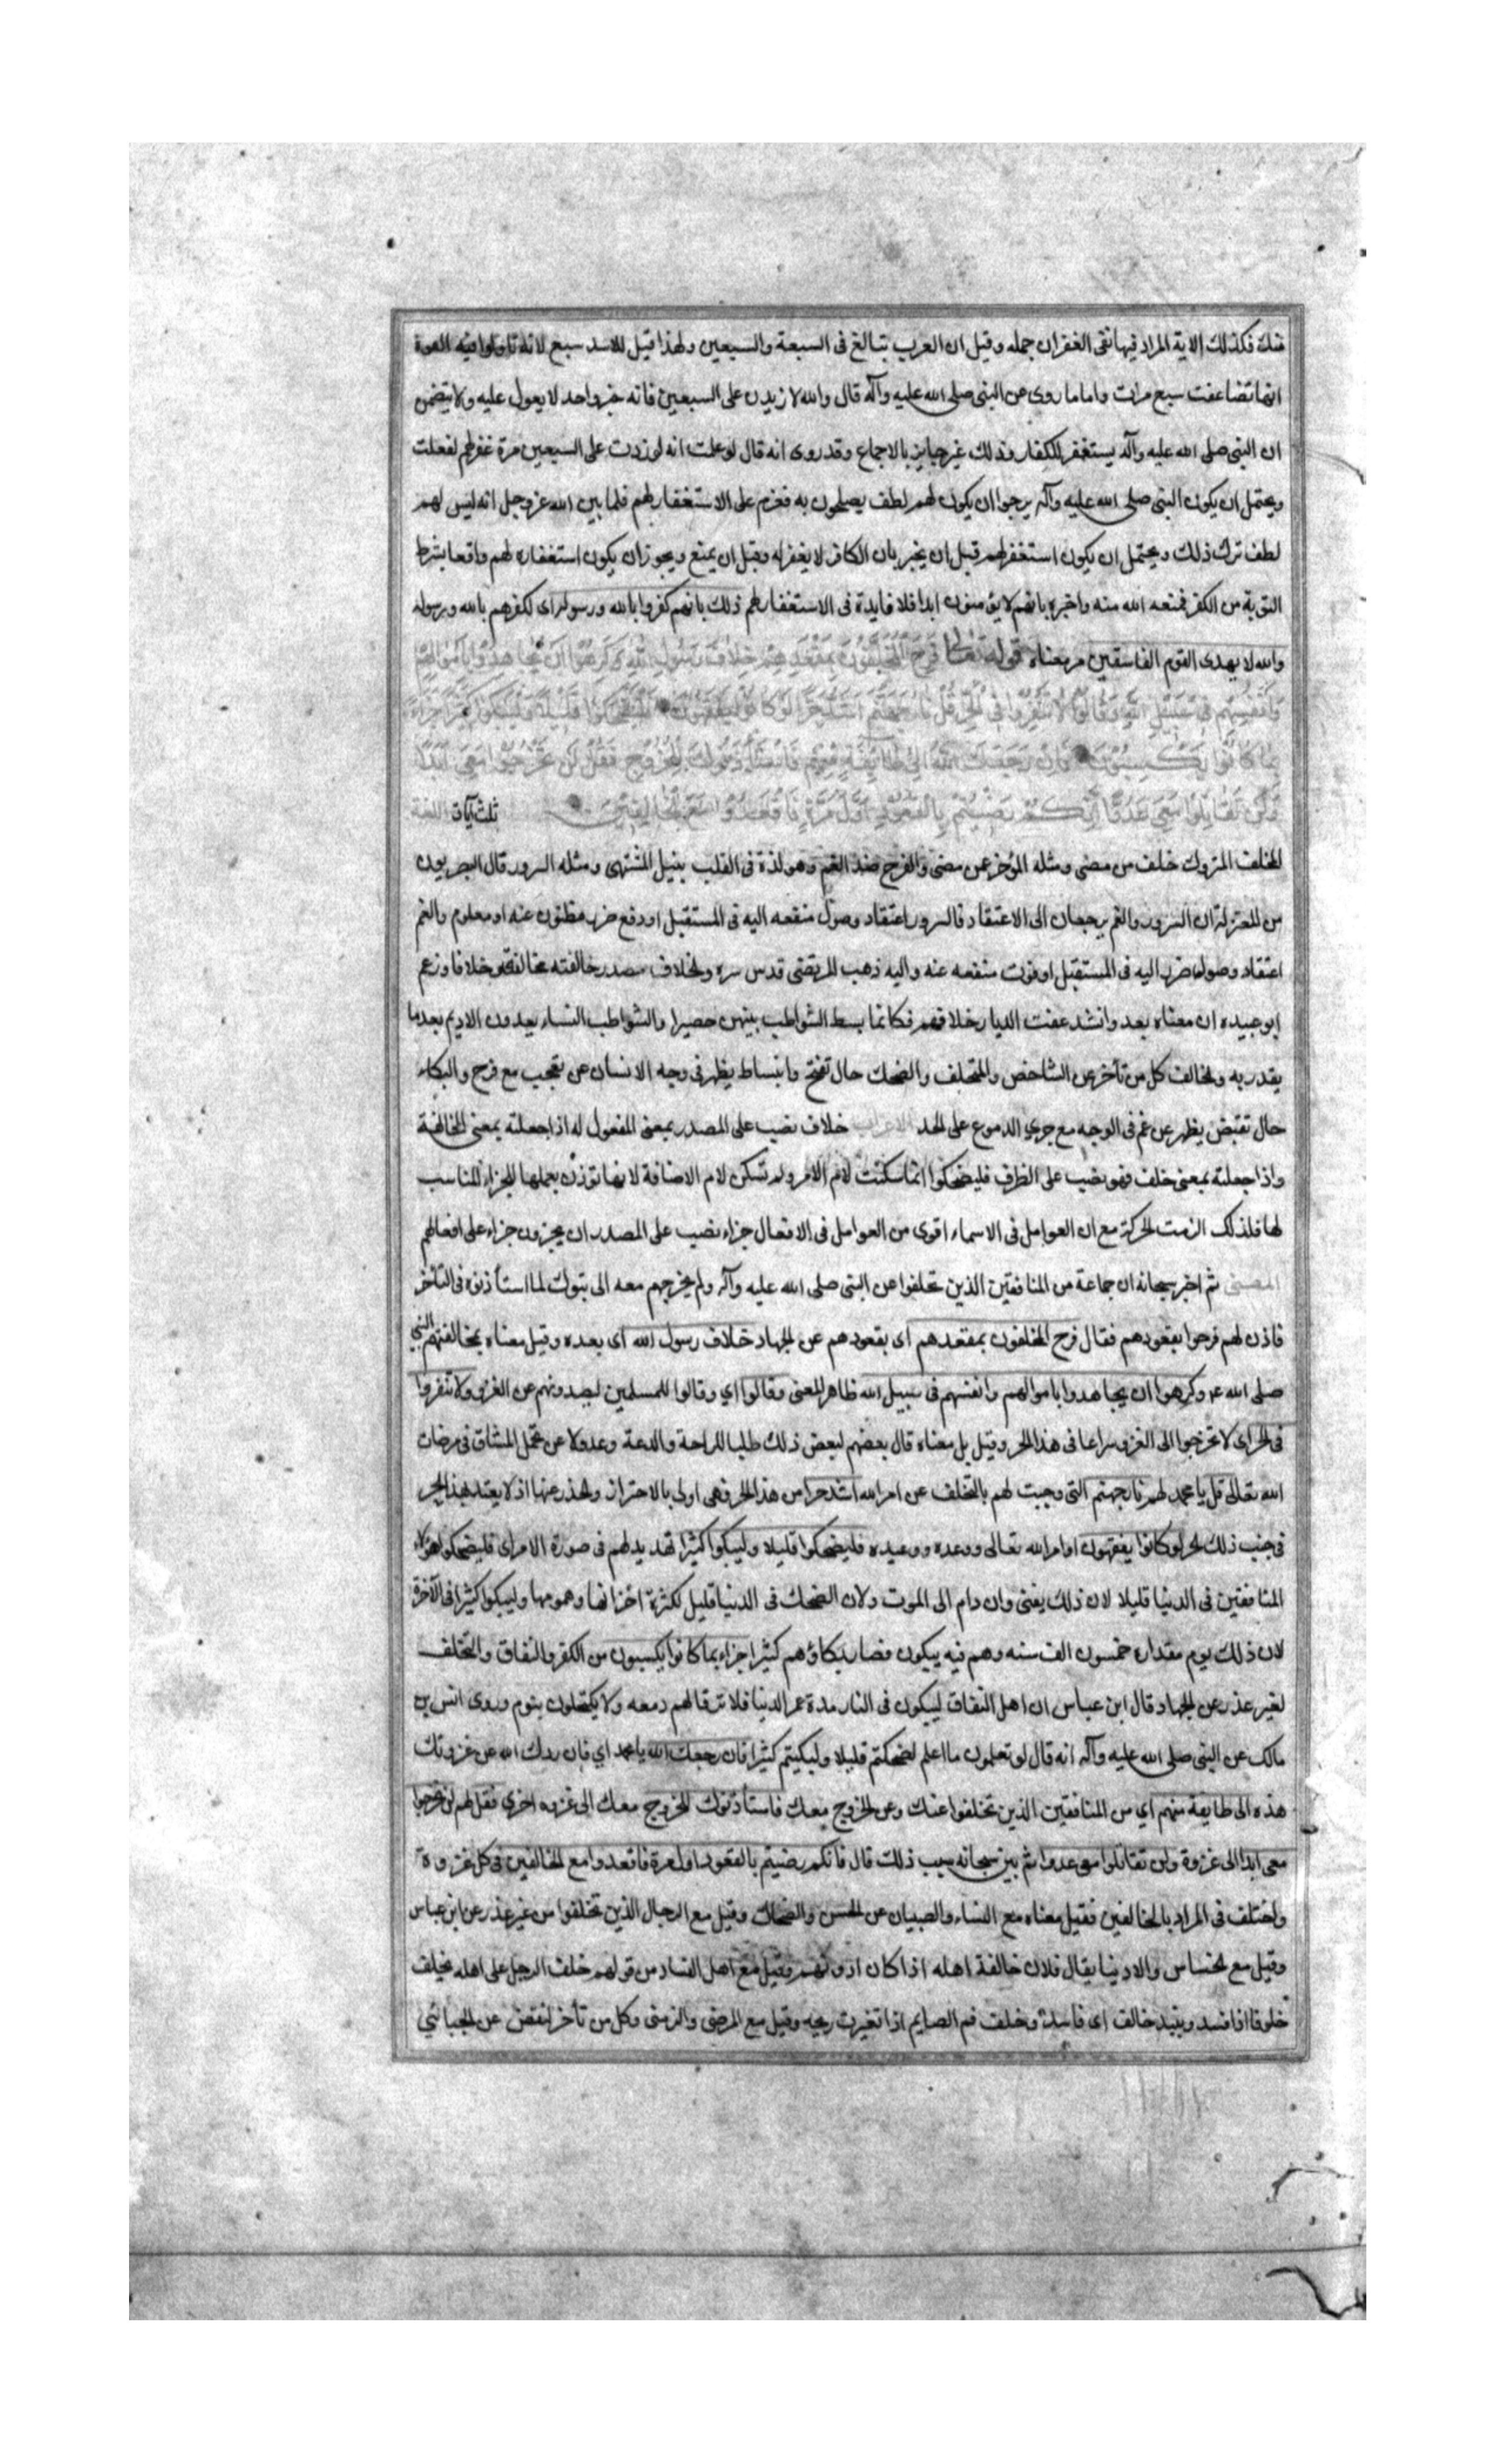 منك فكذلك الاية المراد فيها نفى الغفران جمله وقيل ان العرب تبالغ فى السبعة والسبعين ولهذا قيل للاسد سبع لانه تاولوا فيه القوة
انها تضاعفت سبع مرات واما ما روى عن النبى صلى الله عليه وآله قال والله لازيدن على السبعين فانه خبر واحد لا يعول عليه ولا يتضمن
ان النبى صلى الله عليه وآله يستغفر للكفار وذلك غير جايز بالاجماع وقد روى انه قال لو علمت انه لو زدت على السبعين مرة غفر لهم لفعلت
ويحتمل ان يكون النبى صلى الله عليه وآله يرجوا ان يكون لهم لطف يصلحون به فعزم على الاستغفار لهم فلما بين الله عز وجل انه ليس لهم
لطف ترك ذلك ويحتمل ان يكون استغفر لهم قبل ان يخبر بان الكافر لا يغفر له وقبل ان يمنع ويجوز ان يكون استغفاره لهم واقعا بشرط
التوبة من الكفر فمنعه الله منه واخبره بانهم لا يؤمنون ابدا فلا فايدة فى الاستغفار لهم ذلك بانهم كفروا بالله ورسوله اى لكفرهم بالله وبرسوله
والله لا يهدى القوم الفاسقين مر معناه قوله تعالى فَرِحَ الْمُخَلَّفُونَ بِمَقْعَدِهِمْ خِلَافَ رَسُولِ اللَّهِ وَكَرِهُوا أَنْ يُجَاهِدُوا بِأَمْوَالِهِمْ
وَأَنْفُسِهِمْ فِي سَبِيلِ اللَّهِ وَقَالُوا لَا تَنْفِرُوا فِي الْحَرِّ قُلْ نَارُ جَهَنَّمَ أَشَدُّ حَرًّا لَوْ كَانُوا يَفْقَهُونَ فَلْيَضْحَكُوا قَلِيلًا وَلْيَبْكُوا كَثِيرًا جَزَاءً
بِمَا كَانُوا يَكْسِبُونَ فَإِنْ رَجَعَكَ اللَّهُ إِلَى طَائِفَةٍ مِنْهُمْ فَاسْتَأْذَنُوكَ لِلْخُرُوجِ فَقُلْ لَنْ تَخْرُجُوا مَعِيَ أَبَدًا
وَلَنْ تُقَاتِلُوا مَعِيَ عَدُوًّا إِنَّكُمْ رَضِيتُمْ بِالْقُعُودِ أَوَّلَ مَرَّةٍ فَاقْعُدُوا مَعَ الْخَالِفِينَ ثلث آيات اللغة
المخلف المتروك خلف من مضى ومثله المؤخر عمن مضى والفرح ضد الغم وهو لذة فى القلب بنيل المشتهى ومثله السرور قال البصريون
من المعتزلة ان السرور والغم يرجعان الى الاعتقاد فالسرور اعتقاد وصول منفعه اليه فى المستقبل او دفع ضرر مظنون عنه او معلوم والغم
اعتقاد وصول ضرر اليه فى المستقبل او فوت منفعه عنه واليه ذهب المرتضى قدس سره والخلاف مصدر خالفته مخالفة وخلافا وزعم
ابو عبيده ان معناه بعد وانشد عفت الديار خلافهم فكانما بسط الشواطب بينهن حصيرا والشواطب النساء يعددن الاديم بعد ما
يقدر به والخالف كل من تأخر عن الشاخص والمتخلف والضحك حال تفتح وانبساط يظهر فى وجه الانسان عن تعجب مع فرح والبكاء
حال تقبض يظهر عن غم فى الوجه مع جرى الدموع على الخد الاعراب خلاف نصب على المصدر بمعنى المفعول له اذا جعلته بمعنى المخالفة
واذا جعلته بمعنى خلف فهو نصب على الظرف فليضحكوا انما سكنت لام الامر ولم تسكن لام الاضافة لانها تؤذن بعملها للجزاء المناسب
لها فلذلك الزمت الحركة مع ان العوامل فى الاسماء اقوى من العوامل فى الافعال جزاء نصب على المصدر ان يجزون جزاء على افعالهم
المعنى ثم اخبر سبحانه ان جماعة من المنافقين الذين تخلفوا عن النبى صلى الله عليه وآله ولم يخرجهم معه الى تبوك لما استأذنوه فى التأخر
فاذن لهم فرحوا بقعودهم فقال فرح المخلفون بمقعدهم اى بقعودهم عن الجهاد خلاف رسول الله اى بعده وقيل معناه بمخالفتهم النبى
صلى الله عم وكرهوا ان يجاهدوا باموالهم وانفسهم فى سبيل الله ظاهر المعنى وقالوا اي وقالوا للمسلمين ليصدونهم عن الغزو لا تنفروا
فى الحر اى لا تخرجوا الى الغزو سراعا فى هذا الحر وقيل بل معناه قال بعضهم لبعض ذلك طلبا للراحة والدعة وعدولا عن تحمل المشاق فى مرضات
الله تعالى قل يا محمد لهم نار جهنم التى وجبت لهم بالتخلف عن امر الله اشد حرا من هذا الحر فهى اولى بالاحتراز والحذر عنها اذ لا يعتد بهذا الحر
فى جنب ذلك الحر لو كانوا يفقهون اوامر الله تعالى ووعده ووعيده فليضحكوا قليلا وليبكوا كثيرا تهديد لهم فى صورة الامر اى فليضحكوا هؤلاء
المنافقين فى الدنيا قليلا لان ذلك يفنى وان دام الى الموت ولان الضحك فى الدنيا قليل لكثرة احزانها وهمومها وليبكوا كثيرا فى الآخرة
لان ذلك يوم مقداره خمسون الف سنه وهم فيه يبكون فصار بكاؤهم كثيرا جزاء بما كانوا يكسبون من الكفر والنفاق والتخلف
لغير عذر عن الجهاد قال ابن عباس ان اهل النفاق ليبكون فى النار مدة عمر الدنيا فلا ترقا لهم دمعه ولا يكتحلون بنوم وروى انس بن
مالك عن النبى صلى الله عليه وآله انه قال لو تعلمون ما اعلم لضحكتم قليلا ولبكيتم كثيرا فان رجعك الله يا محمد اي فان ردك الله عن غزوتك
هذه الى طايفة منهم اي من المنافقين الذين تخلفوا عنك وعن الخروج معك فاستأذنوك للخروج معك الى غزوه اخرى فقل لهم لن تخرجوا
معى ابدا الى غزوة ولن تقاتلوا معى عدوا ثم بين سبحانه سبب ذلك قال فانكم رضيتم بالقعود اول مرة فاقعدوا مع الخالفين فى كل غزوة
واختلف فى المراد بالخالفين فقيل معناه مع النساء والصبيان عن الحسن والضحاك وقيل مع الرجال الذين تخلفوا من غير عذر عن ابن عباس
وقيل مع الخساس والادنيا يقال فلان خالفة اهله اذا كان ادونهم وقيل مع اهل الفساد من قولهم خلف الرجل على اهله يخلف
خلوفا اذا فسد ونبيذ خالف اى فاسد وخلف فم الصايم اذا تغيرت ريحه وقيل مع المرضى والزمنى وكل من تأخر لنقص عن الجبائي